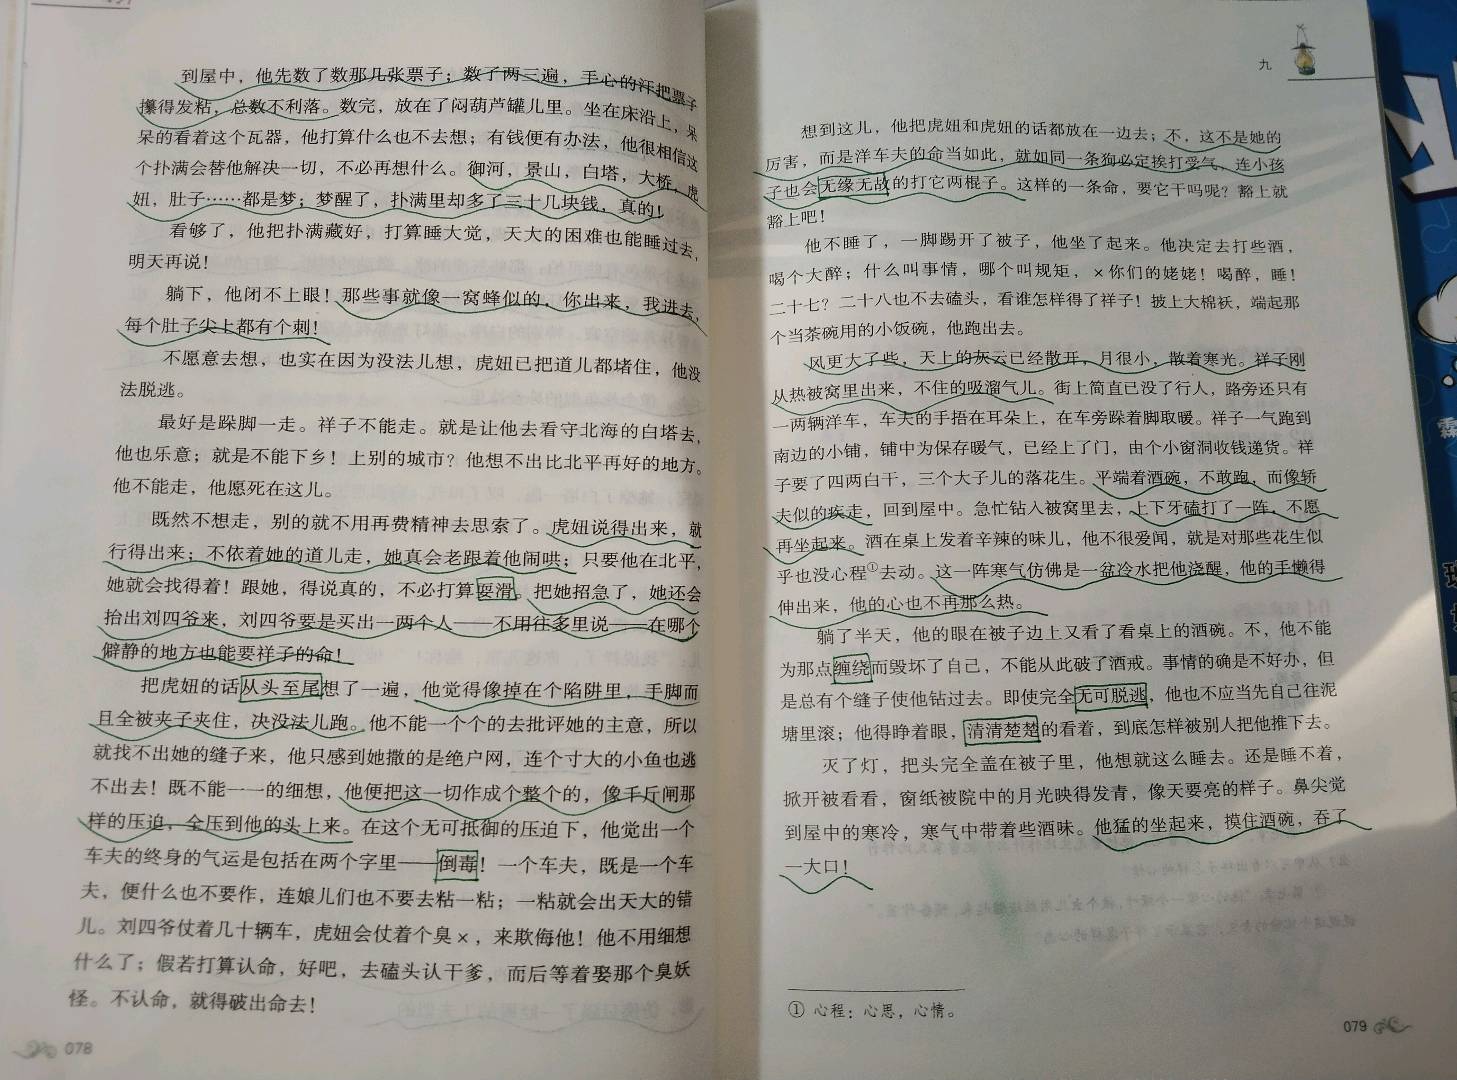 到屋中，他先数了数那几张票子；数了两三遍，手心的汗把票子
攥得发粘，总数不利落。数完，放在了闷葫芦罐儿里。坐在床沿上，呆
呆的看着这个瓦器，他打算什么也不去想；有钱便有办法，他很相信这
个扑满会替他解决一切，不必再想什么。御河，景山，白塔，大桥，虎
妞，肚子……都是梦；梦醒了，扑满里却多了三十几块钱，真的！
看够了，他把扑满藏好，打算睡大觉，天大的困难也能睡过去，
明天再说！
躺下，他闭不上眼！那些事就像一窝蜂似的，你出来，我进去，
每个肚子尖上都有个刺！
不愿意去想，也实在因为没法儿想，虎妞已把道儿都堵住，他没
法脱逃。
最好是跺脚一走。祥子不能走。就是让他去看守北海的白塔去，
他也乐意；就是不能下乡！上别的城市？他想不出比北平再好的地方。
他不能走，他愿死在这儿。
既然不想走，别的就不用再费精神去思索了。虎妞说得出来，就
行得出来；不依着她的道儿走，她真会老跟着他闹哄；只要他在北平，
她就会找得着！跟她，得说真的，不必打算耍滑。把她招急了，她还会
抬出刘四爷来，刘四爷要是买出一两个人——不用往多里说——在哪个
僻静的地方也能要祥子的命！
把虎妞的话从头至尾想了一遍，他觉得像掉在个陷阱里，手脚而
且全被夹子夹住，决没法儿跑。他不能一个个的去批评她的主意，所以
就找不出她的缝子来，他只感到她撒的是绝户网，连个寸大的小鱼也逃
不出去！既不能一一的细想，他便把这一切作成个整个的，像千斤闸那
样的压迫，全压到他的头上来。在这个无可抵御的压迫下，他觉出一个
车夫的终身的气运是包括在两个字里——倒毒！一个车夫，既是一个车
夫，便什么也不要作，连娘儿们也不要去粘一粘；一粘就会出天大的错
儿。刘四爷仗着几十辆车，虎妞会仗着个臭×，来欺侮他！他不用细想
什么了；假若打算认命，好吧，去磕头认干爹，而后等着娶那个臭妖
怪。不认命，就得破出命去！
078
九
想到这儿，他把虎妞和虎妞的话都放在一边去；不，这不是她的
厉害，而是洋车夫的命当如此，就如同一条狗必定挨打受气，连小孩
子也会无缘无故的打它两棍子。这样的一条命，要它干吗呢？豁上就
豁上吧！
他不睡了，一脚踢开了被子，他坐了起来。他决定去打些酒，
喝个大醉；什么叫事情，哪个叫规矩，×你们的姥姥！喝醉，睡！
二十七？二十八也不去磕头，看谁怎样得了祥子！披上大棉袄，端起那
个当茶碗用的小饭碗，他跑出去。
风更大了些，天上的灰云已经散开，月很小，散着寒光。祥子刚
从热被窝里出来，不住的吸溜气儿。街上简直已没了行人，路旁还只有
一两辆洋车，车夫的手捂在耳朵上，在车旁跺着脚取暖。祥子一气跑到
南边的小铺，铺中为保存暖气，已经上了门，由个小窗洞收钱递货。祥
子要了四两白干，三个大子儿的落花生。平端着酒碗，不敢跑，而像轿
夫似的疾走，回到屋中。急忙钻入被窝里去，上下牙磕打了一阵，不愿
再坐起来。酒在桌上发着辛辣的味儿，他不很爱闻，就是对那些花生似
乎也没心程①去动。这一阵寒气仿佛是一盆冷水把他浇醒，他的手懒得
伸出来，他的心也不再那么热。
躺了半天，他的眼在被子边上又看了看桌上的酒碗。不，他不能
为那点缠绕而毁坏了自己，不能从此破了酒戒。事情的确是不好办，但
是总有个缝子使他钻过去。即使完全无可脱逃，他也不应当先自己往泥
塘里滚；他得睁着眼，清清楚楚的看着，到底怎样被别人把他推下去。
灭了灯，把头完全盖在被子里，他想就这么睡去。还是睡不着，
掀开被看看，窗纸被院中的月光映得发青，像天要亮的样子。鼻尖觉
到屋中的寒冷，寒气中带着些酒味。他猛的坐起来，摸住酒碗，吞了
一大口！
① 心程：心思，心情。
079